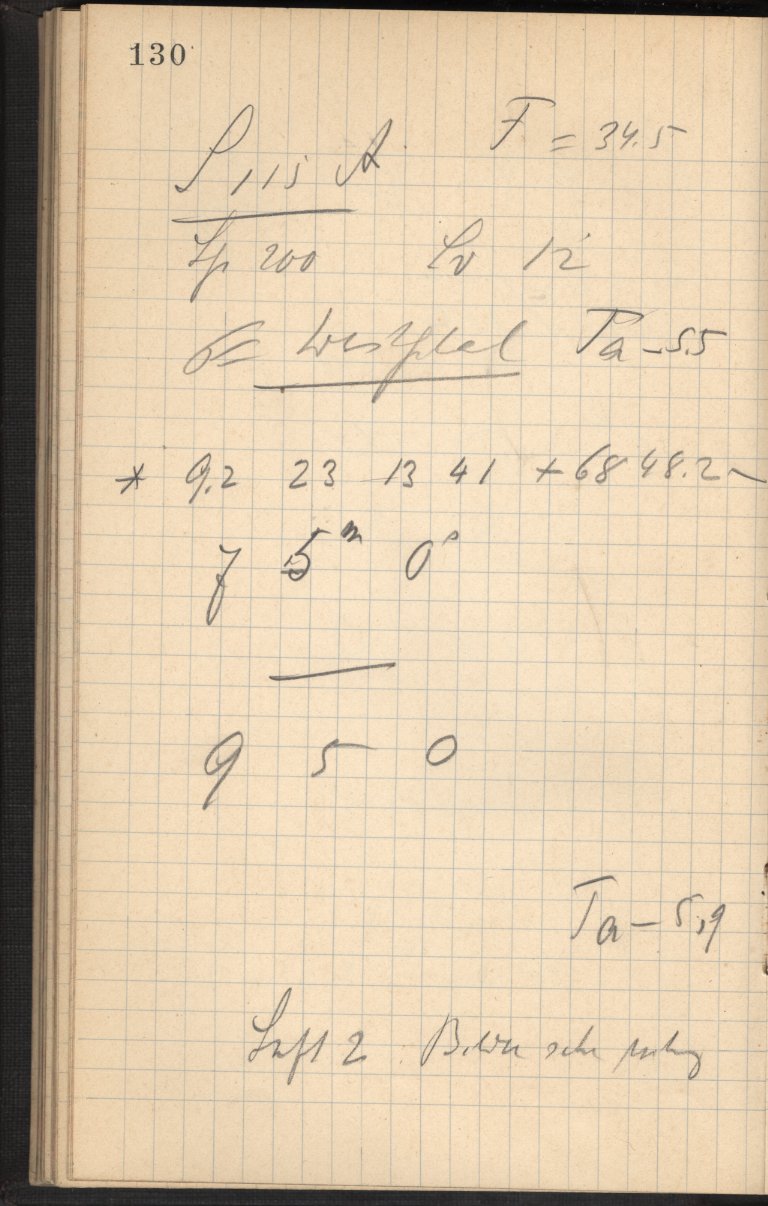 130
P 115 A F = 34.5
Sp 200 Lv 12
G= Westphal Ta -5.5
* 9.2 23 13 41 + 68 48.2
7 5ᵐ 0ˢ
9 5 0
Ta - 5,9
Luft 2 Bilder sehr ruhig